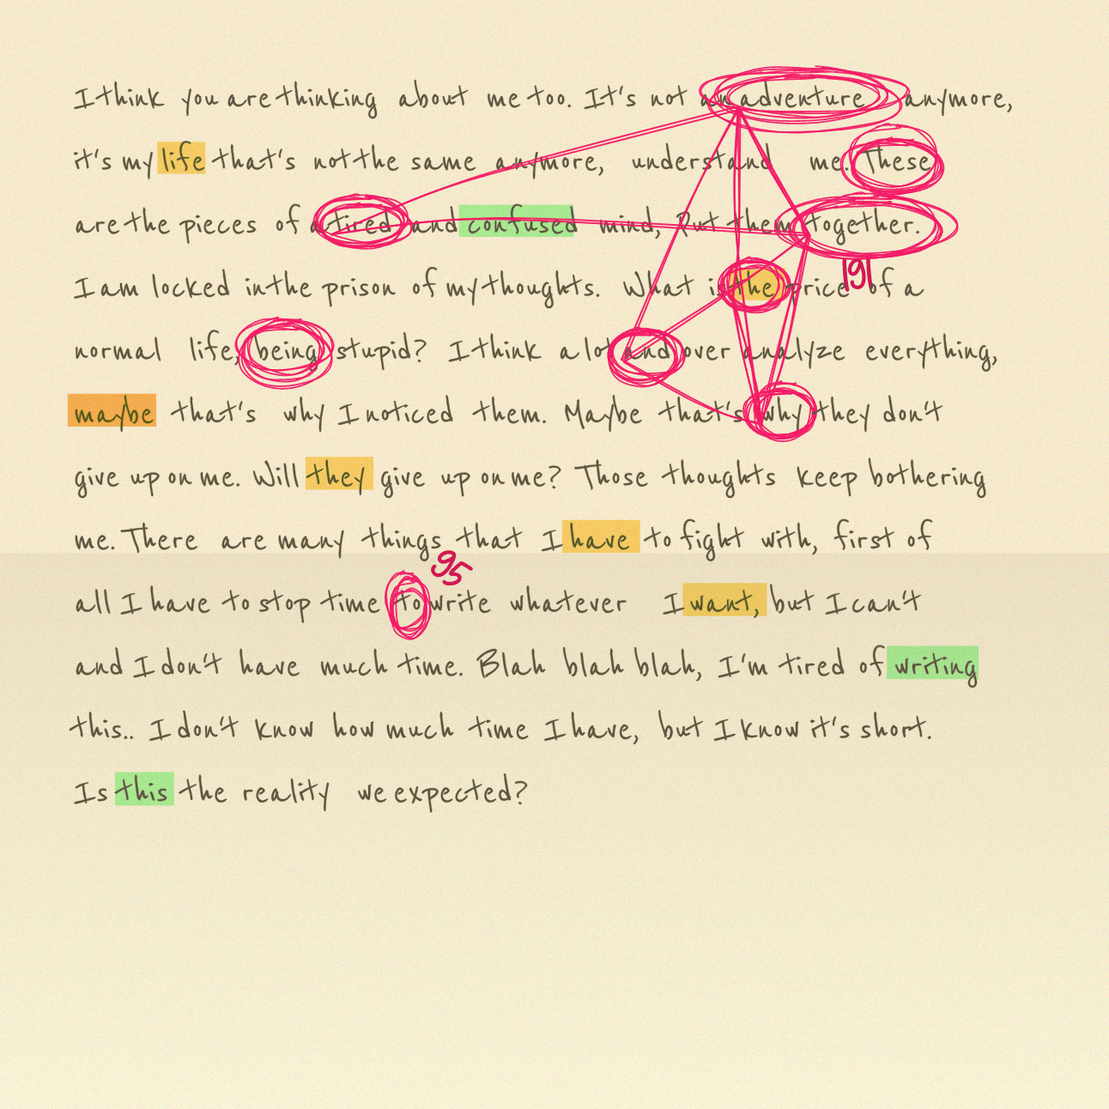 I think you are thinking about me too. It's not an adventure anymore,
it's my life that's not the same anymore, understand me. These
are the pieces of a tired and confused mind, Put them together.
191
I am locked in the prison of my thoughts. What is the price of a
normal life, being stupid? I think a lot and over analyze everything,
maybe that's why I noticed them. Maybe that's why they don't
give up on me. Will they give up on me? Those thoughts keep bothering
me. There are many things that I have to fight with, first of
95
all I have to stop time to write whatever I want, but I can't
and I don't have much time. Blah blah blah, I'm tired of writing
this.. I don't know how much time I have, but I know it's short.
Is this the reality we expected?